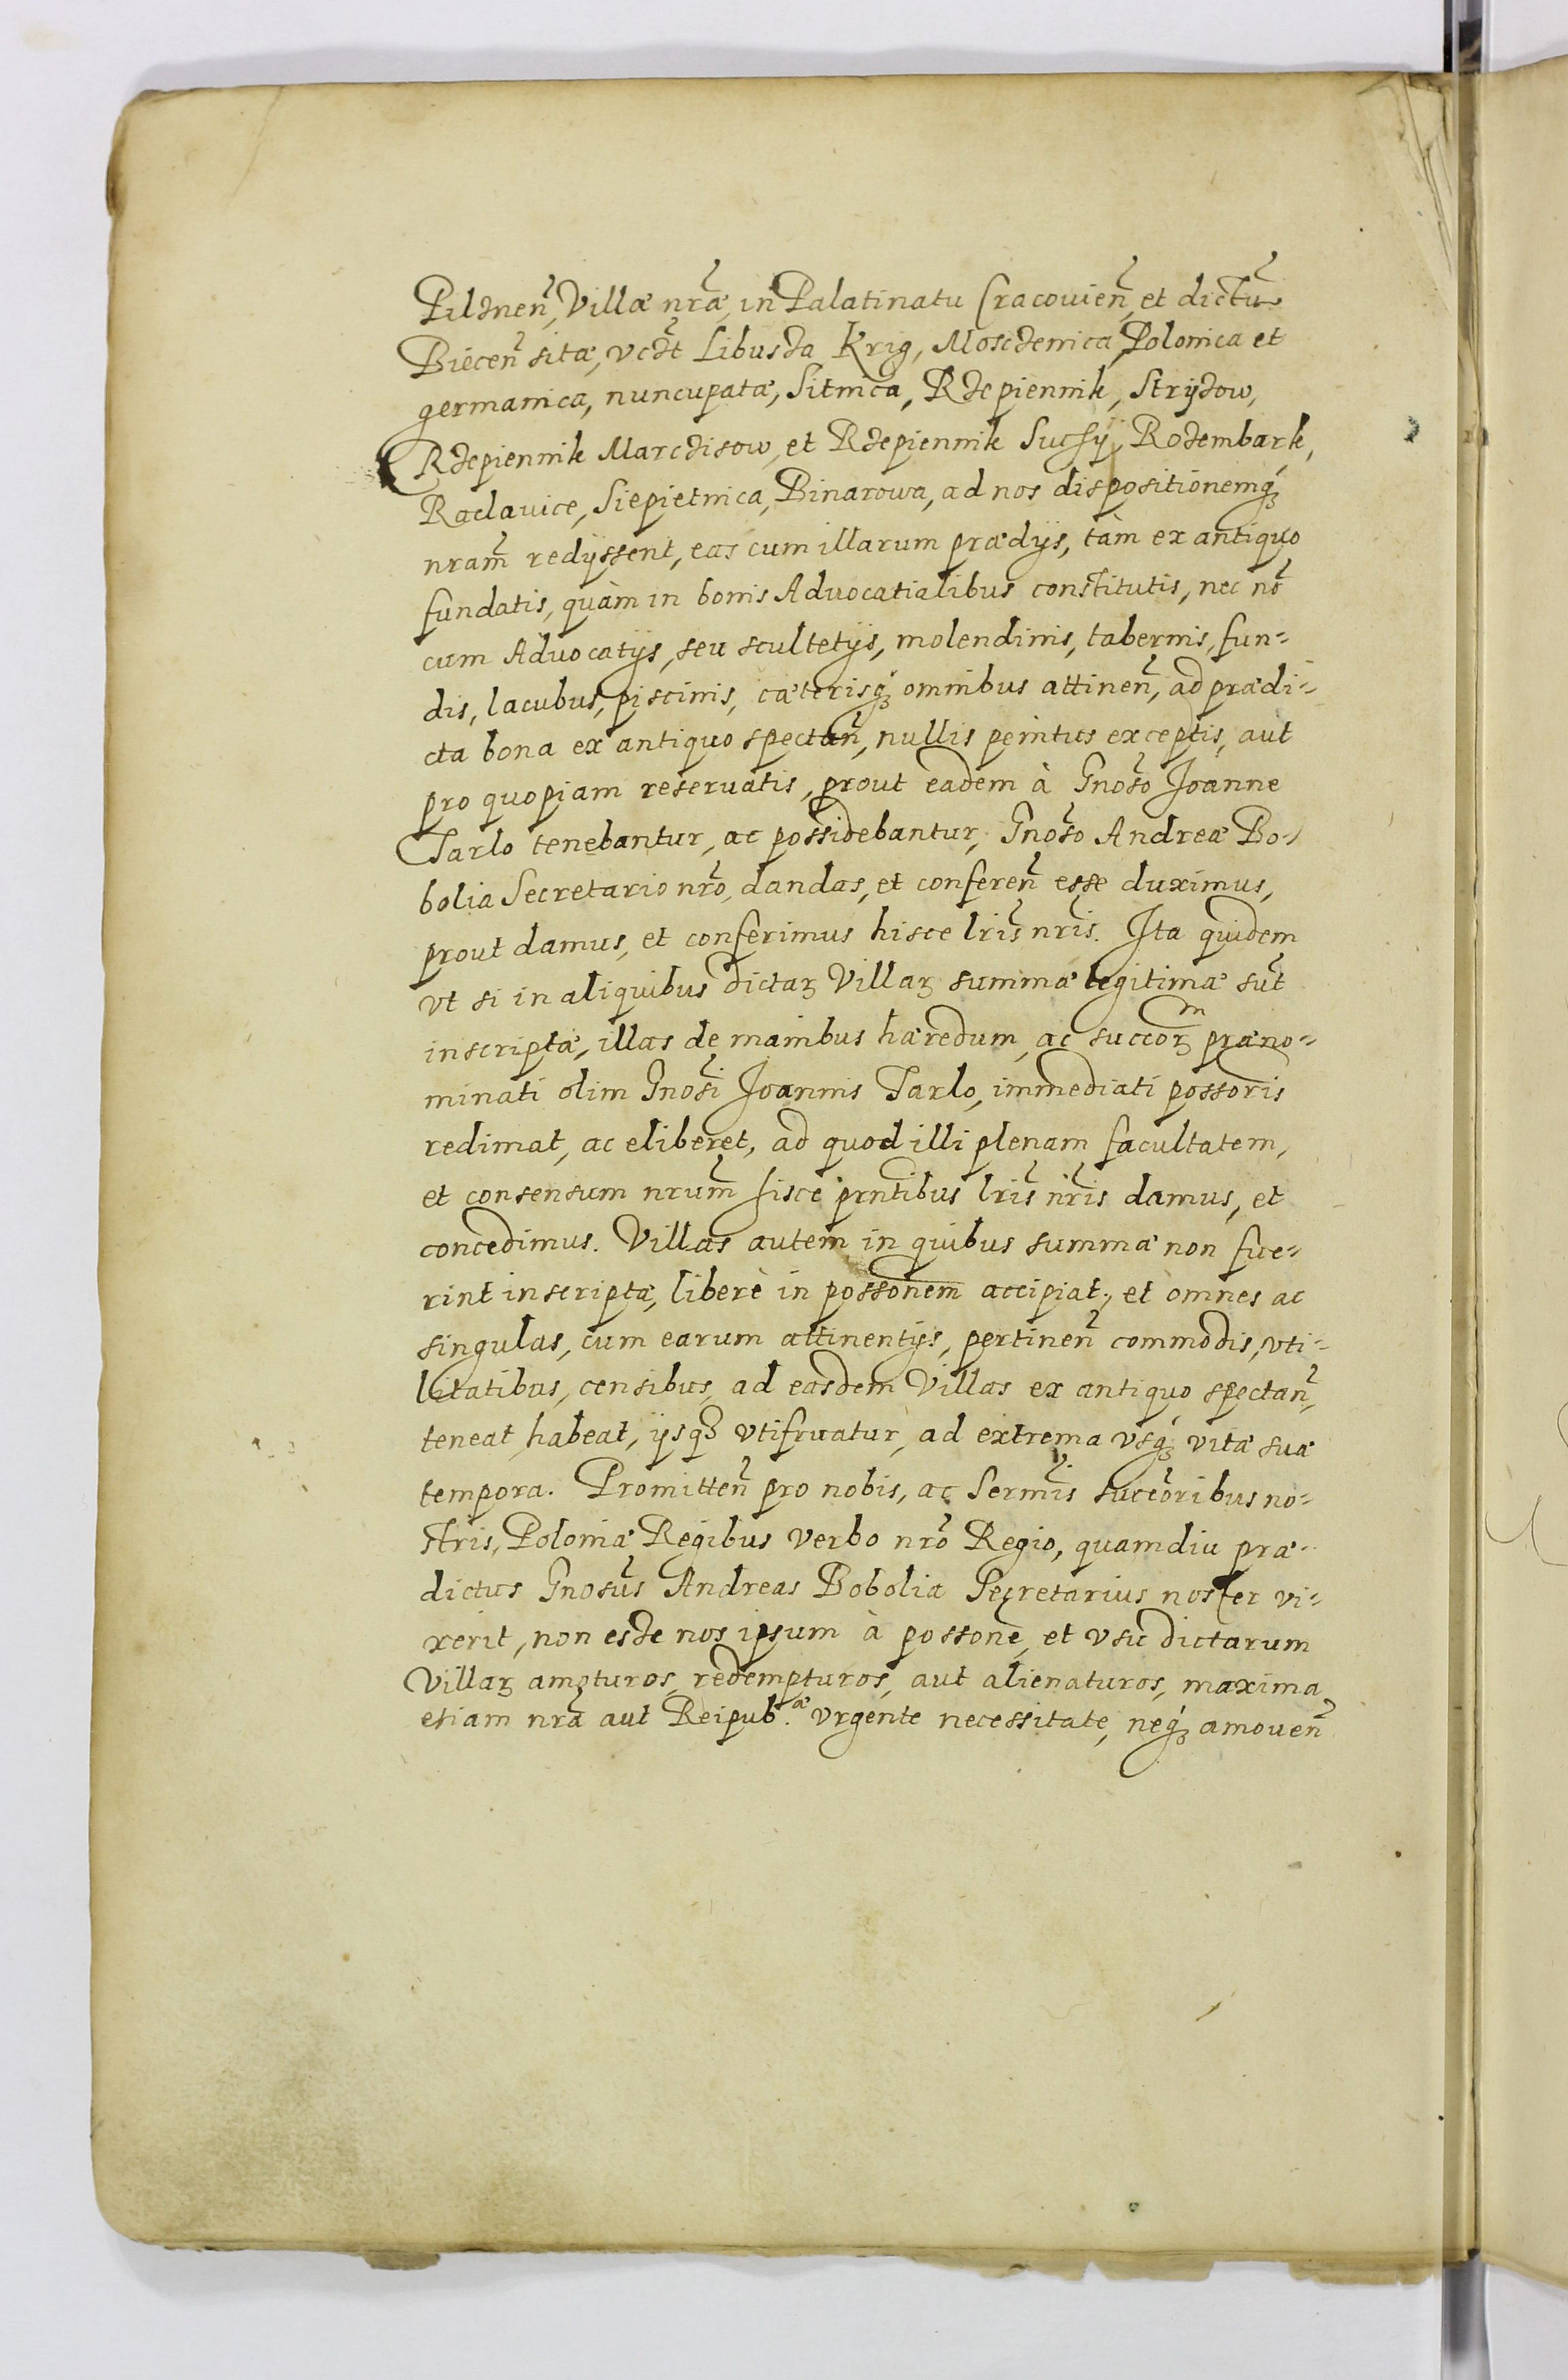 Pilznen̄, Villæ nr̄æ, in Palatinatu Cracouien̄, et dictū
Biecen̄ sitæ, vczt Libusza Krig, Mosczenica Polonica et
germanica, nuncupatæ, Sitnica, Rzepiennik, Stryzow,
Rzepiennik Marczisow, et Rzepiennik Suchy, Rozembark,
Raclauice, Siepietnica, Binarowa, ad nos dispositionemq́ꝫ
nram̄ redijssent, eas cum illarum prædijs, tàm ex antiquo
fundatis, quàm in bonis Aduocatialibus constitutis, nec nō
cum Aduocatijs, seu scultetijs, molendinis, tabernis, fun=
dis, lacubus, piscinis, cæterisq́ꝫ omnibus attinen̄, ad prædi=
cta bona ex antiquo spectan̄, nullis penitus exceptis, aut
pro quopiam reseruatis, prout eadem à Gnoso̅ Joanne
Tarlo tenebantur, ac possidebantur, Gnoso̅ Andreæ Bo=
bolia Secretario nrō, dandas, et conferen̄ esse duximus,
prout damus, et conferimus hisce lrīs nrīs. Ita quidem
vt si in aliquibus dictaꝝ Villaꝝ summæ legitimæ sūt
inscriptæ, illas de manibus hæredum, ac succoꝝm præno=
minati olim Gnosi̅ Joannis Tarlo, immediati possoris
redimat, ac eliberet, ad quod illi plenam facultatem,
et consensum nrum̄ hisce prn̄tibus lrīs nrīs damus, et
concedimus. Villas autem in quibus summæ non fue=
rint inscriptæ, liberè in possonem̄ accipiat, et omnes ac
singulas, cum earum attinentijs, pertinen̄ commodis, vti=
litatibus, censibus, ad easdem Villas ex antiquo spectan̄,
teneat, habeat, ijsqꝫ vtifruatur, ad extrema vsq́ꝫ vitæ suæ
tempora. Promitten̄ pro nobis, ac Sermīs succoribus no=
stris, Poloniæ Regibus verbo nrō Regio, quamdiu præ=
dictus Gnosūs Andreas Bobolia Secretarius noster vi=
xerit, non esse nos ipsum à possone̅, et vsu dictarum
Villaꝝ amoturos, redempturos, aut alienaturos, maxima
etiam nrā aut Reipub.æ vrgente necessitate, neq́ꝫ amouen̄